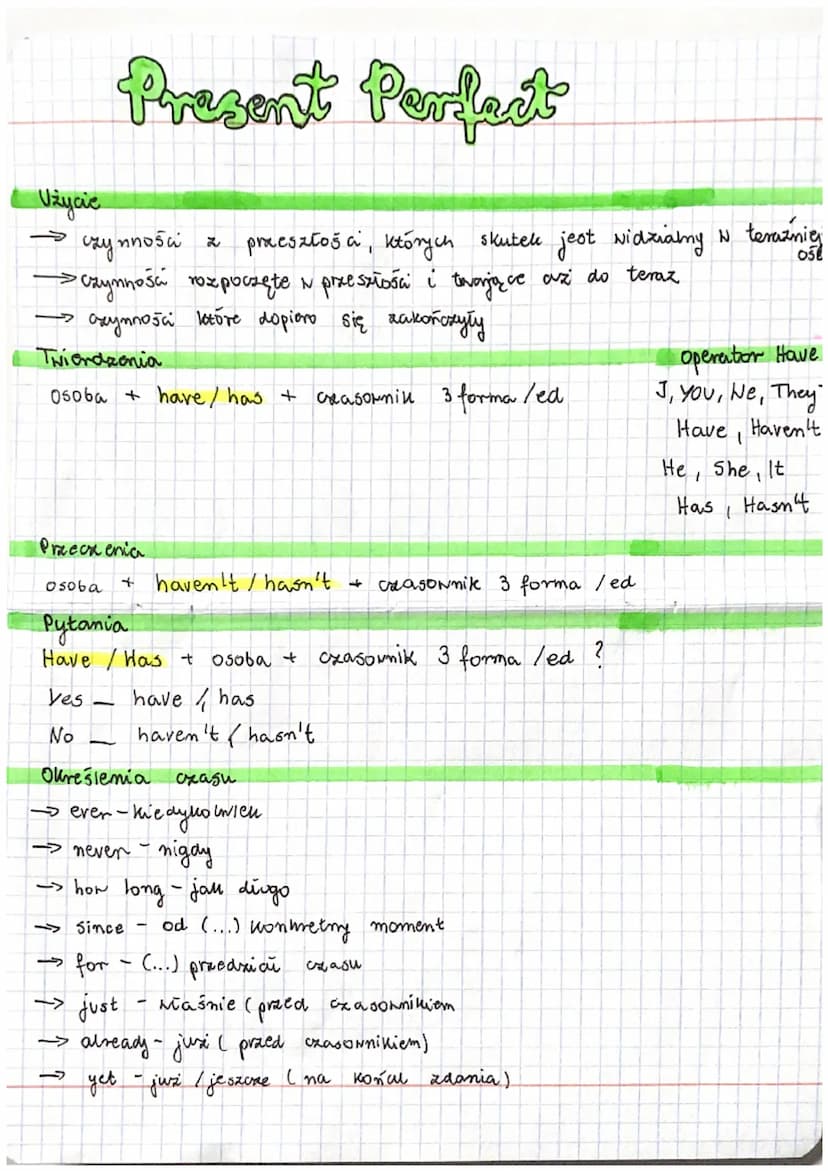 Present Perfect
Użycie
→ czynności z przeszłości, których skutek jest widzialny w teraźniej
ość
→ czynności rozpoczęte w przeszłości i trwające aż do teraz
→ czynności które dopiero się zakończyły
Twierdzenia
operator Have
osoba + have / has + czasownik 3 forma /ed
I, You, We, They
Have, Haven't
He, She, It
Has, Hasn't
Przeczenia
osoba + haven't / hasn't + czasownik 3 forma /ed
Pytania
Have / Has + osoba + czasownik 3 forma /ed ?
Yes _ have / has
No _ haven't / hasn't
Określenia czasu
→ ever - kiedykolwiek
→ never - nigdy
→ how long - jak długo
→ since - od (...) konkretny moment
→ for - (...) przedział czasu
→ just - właśnie (przed czasownikiem
→ already - już ( przed czasownikiem)
→ yet - już / jeszcze ( na końcu zdania)